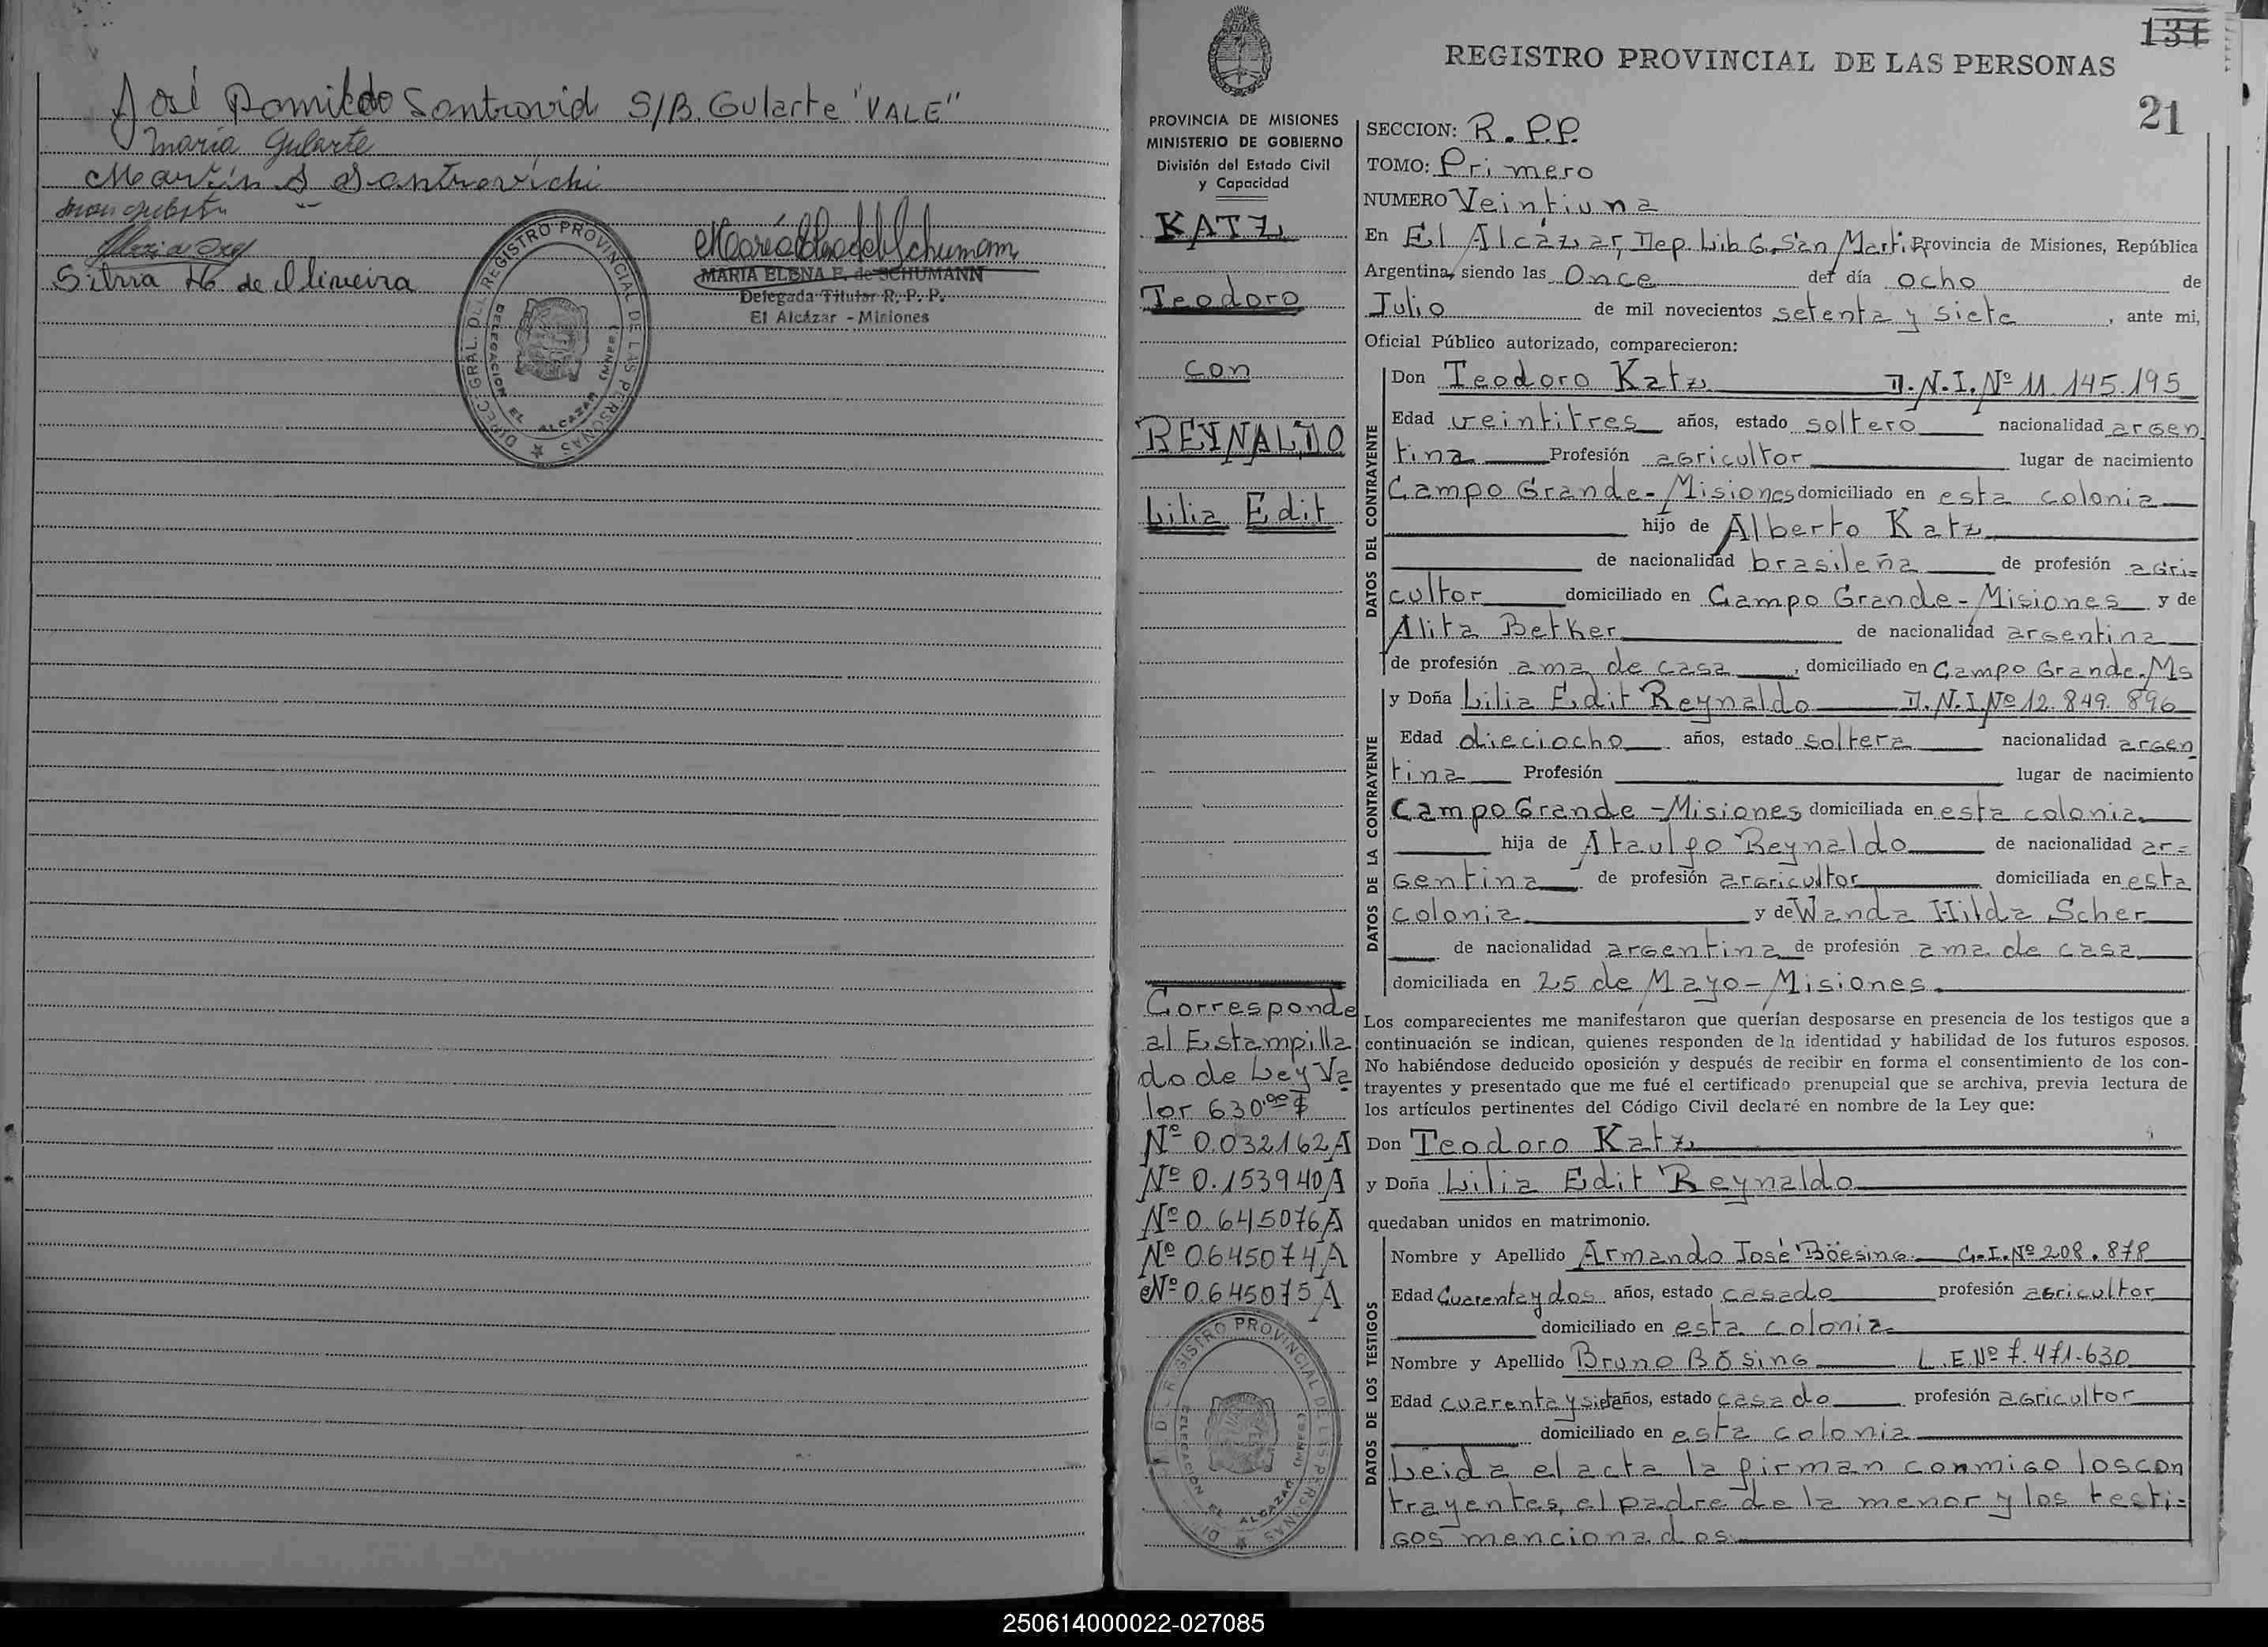 José Romildo Santrovid S/B. Gularte "VALE"
Maria Gularte
Martín S Santrovichi
Silvia H. de Oliveira
MARIA ELENA E. de SCHUMANN
Delegada Titular R. P. P.
El Alcázar - Misiones
DIREC. GRAL. DEL REGISTRO PROVINCIAL DE LAS PERSONAS
DELEGACION EL ALCAZAR (Mnes)
134
REGISTRO PROVINCIAL DE LAS PERSONAS
21
PROVINCIA DE MISIONES
MINISTERIO DE GOBIERNO
División del Estado Civil
y Capacidad
KATZ
Teodoro
con
REYNALDO
Lilia Edit
Corresponde
al Estampilla
do de Ley Va
lor 630.00 $
Nº 0.032162A
Nº 0.153940A
Nº 0.645076A
Nº 0645074A
Nº 0.645075A
DIREC. GRAL. DEL REGISTRO PROVINCIAL DE LAS PERSONAS
DELEGACION EL ALCAZAR (Mnes)
SECCION: R.P.P.
TOMO: Primero
NUMERO Veintiuna
En El Alcázar, Dep. Lib. G. San Martín Provincia de Misiones, República
Argentina, siendo las Once del día ocho de
Julio de mil novecientos setenta y siete, ante mi,
Oficial Público autorizado, comparecieron:
DATOS DEL CONTRAYENTE
Don Teodoro Katz D.N.I. Nº 11.145.195
Edad veintitres años, estado soltero nacionalidad argen
tina Profesión agricultor lugar de nacimiento
Campo Grande-Misiones domiciliado en esta colonia
hijo de Alberto Katz
de nacionalidad brasileña de profesión agri=
cultor domiciliado en Campo Grande-Misiones y de
Alita Betker de nacionalidad argentina
de profesión ama de casa, domiciliado en Campo Grande.Ms
DATOS DE LA CONTRAYENTE
y Doña Lilia Edit Reynaldo D.N.I.Nº 12.849.896
Edad dieciocho años, estado soltera nacionalidad argen
tina Profesión lugar de nacimiento
Campo Grande-Misiones domiciliada en esta colonia
hija de Ataulfo Reynaldo de nacionalidad ar=
gentina de profesión argricultor domiciliada en esta
colonia y de Wanda Hilda Scher
de nacionalidad argentina de profesión ama de casa
domiciliada en 25 de Mayo-Misiones.
Los comparecientes me manifestaron que querían desposarse en presencia de los testigos que a
continuación se indican, quienes responden de la identidad y habilidad de los futuros esposos.
No habiéndose deducido oposición y después de recibir en forma el consentimiento de los con-
trayentes y presentado que me fué el certificado prenupcial que se archiva, previa lectura de
los artículos pertinentes del Código Civil declaré en nombre de la Ley que:
Don Teodoro Katz
y Doña Lilia Edit Reynaldo
quedaban unidos en matrimonio.
DATOS DE LOS TESTIGOS
Nombre y Apellido Armando José Böesing C.I.Nº 208.878
Edad Cuarenta y dos años, estado casado profesión agricultor
domiciliado en esta colonia
Nombre y Apellido Bruno Bösing L.E.Nº 7.471.630
Edad cuarenta y siete años, estado casado profesión agricultor
domiciliado en esta colonia
Leida el acta la firman conmigo los con
trayentes, el padre de la menor y los testi=
gos mencionados
250614000022-027085